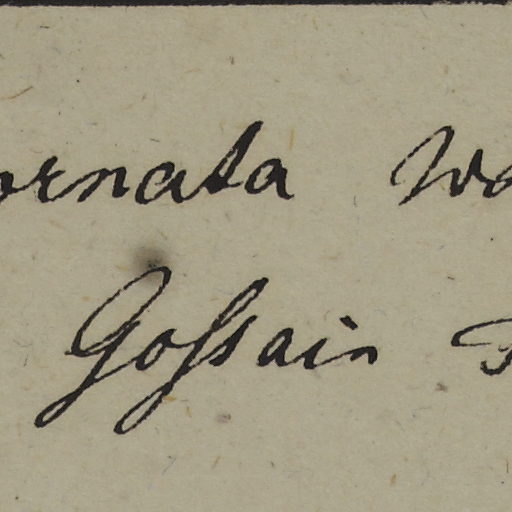 ornata Wa
Gossain